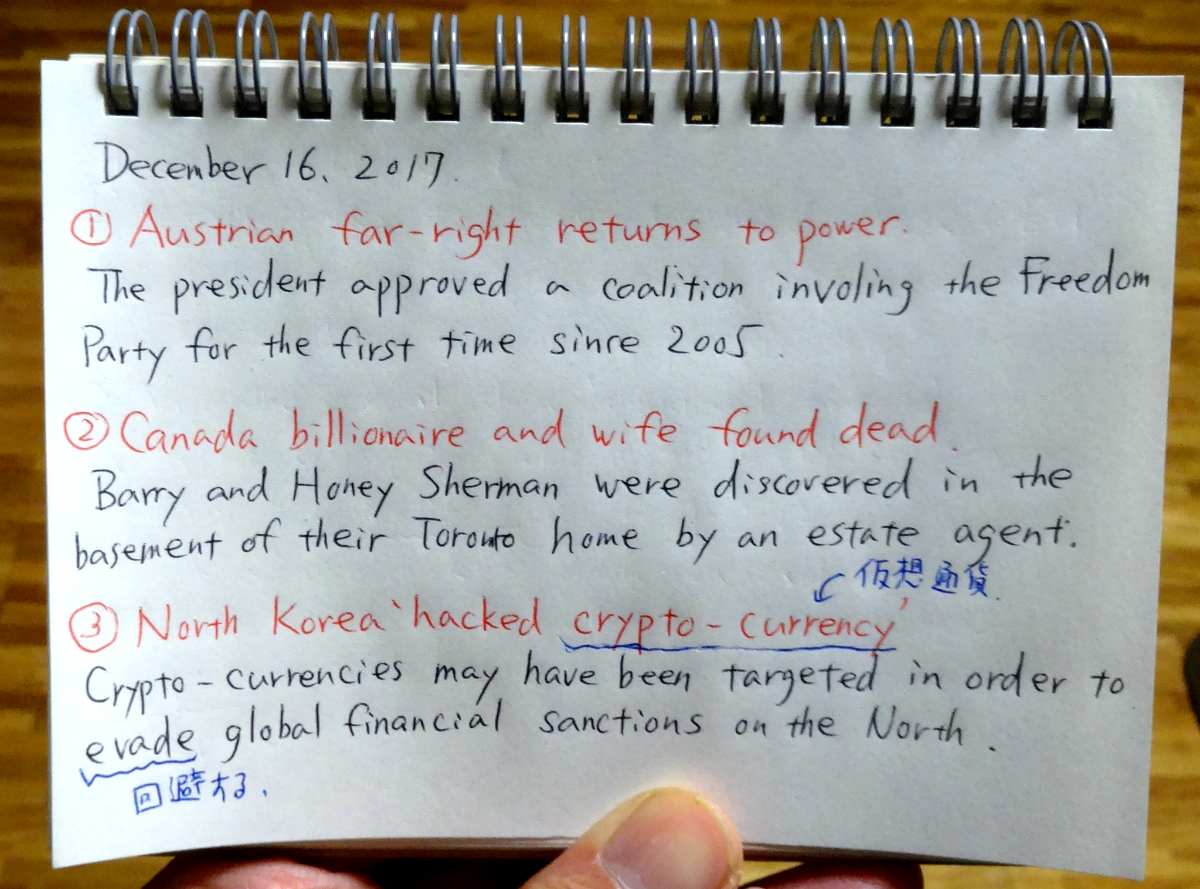 December 16, 2017.
① Austrian far-right returns to power.
The president approved a coalition involing the Freedom
Party for the first time since 2005.
② Canada billionaire and wife found dead.
Barry and Honey Sherman were discovered in the
basement of their Toronto home by an estate agent.
仮想通貨.
③ North Korea 'hacked crypto-currency'
Crypto-currencies may have been targeted in order to
evade global financial sanctions on the North.
回避する.